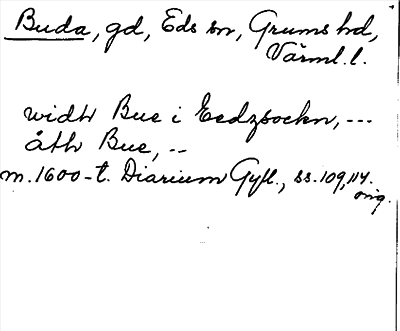 Buda, gd, Eds sn, Grums hd,
Värml. l.
widh Bue i Eedzsockn, ---
åth Bue, --
m. 1600-t. Diarium Gyll., ss. 109, 114.
orig.